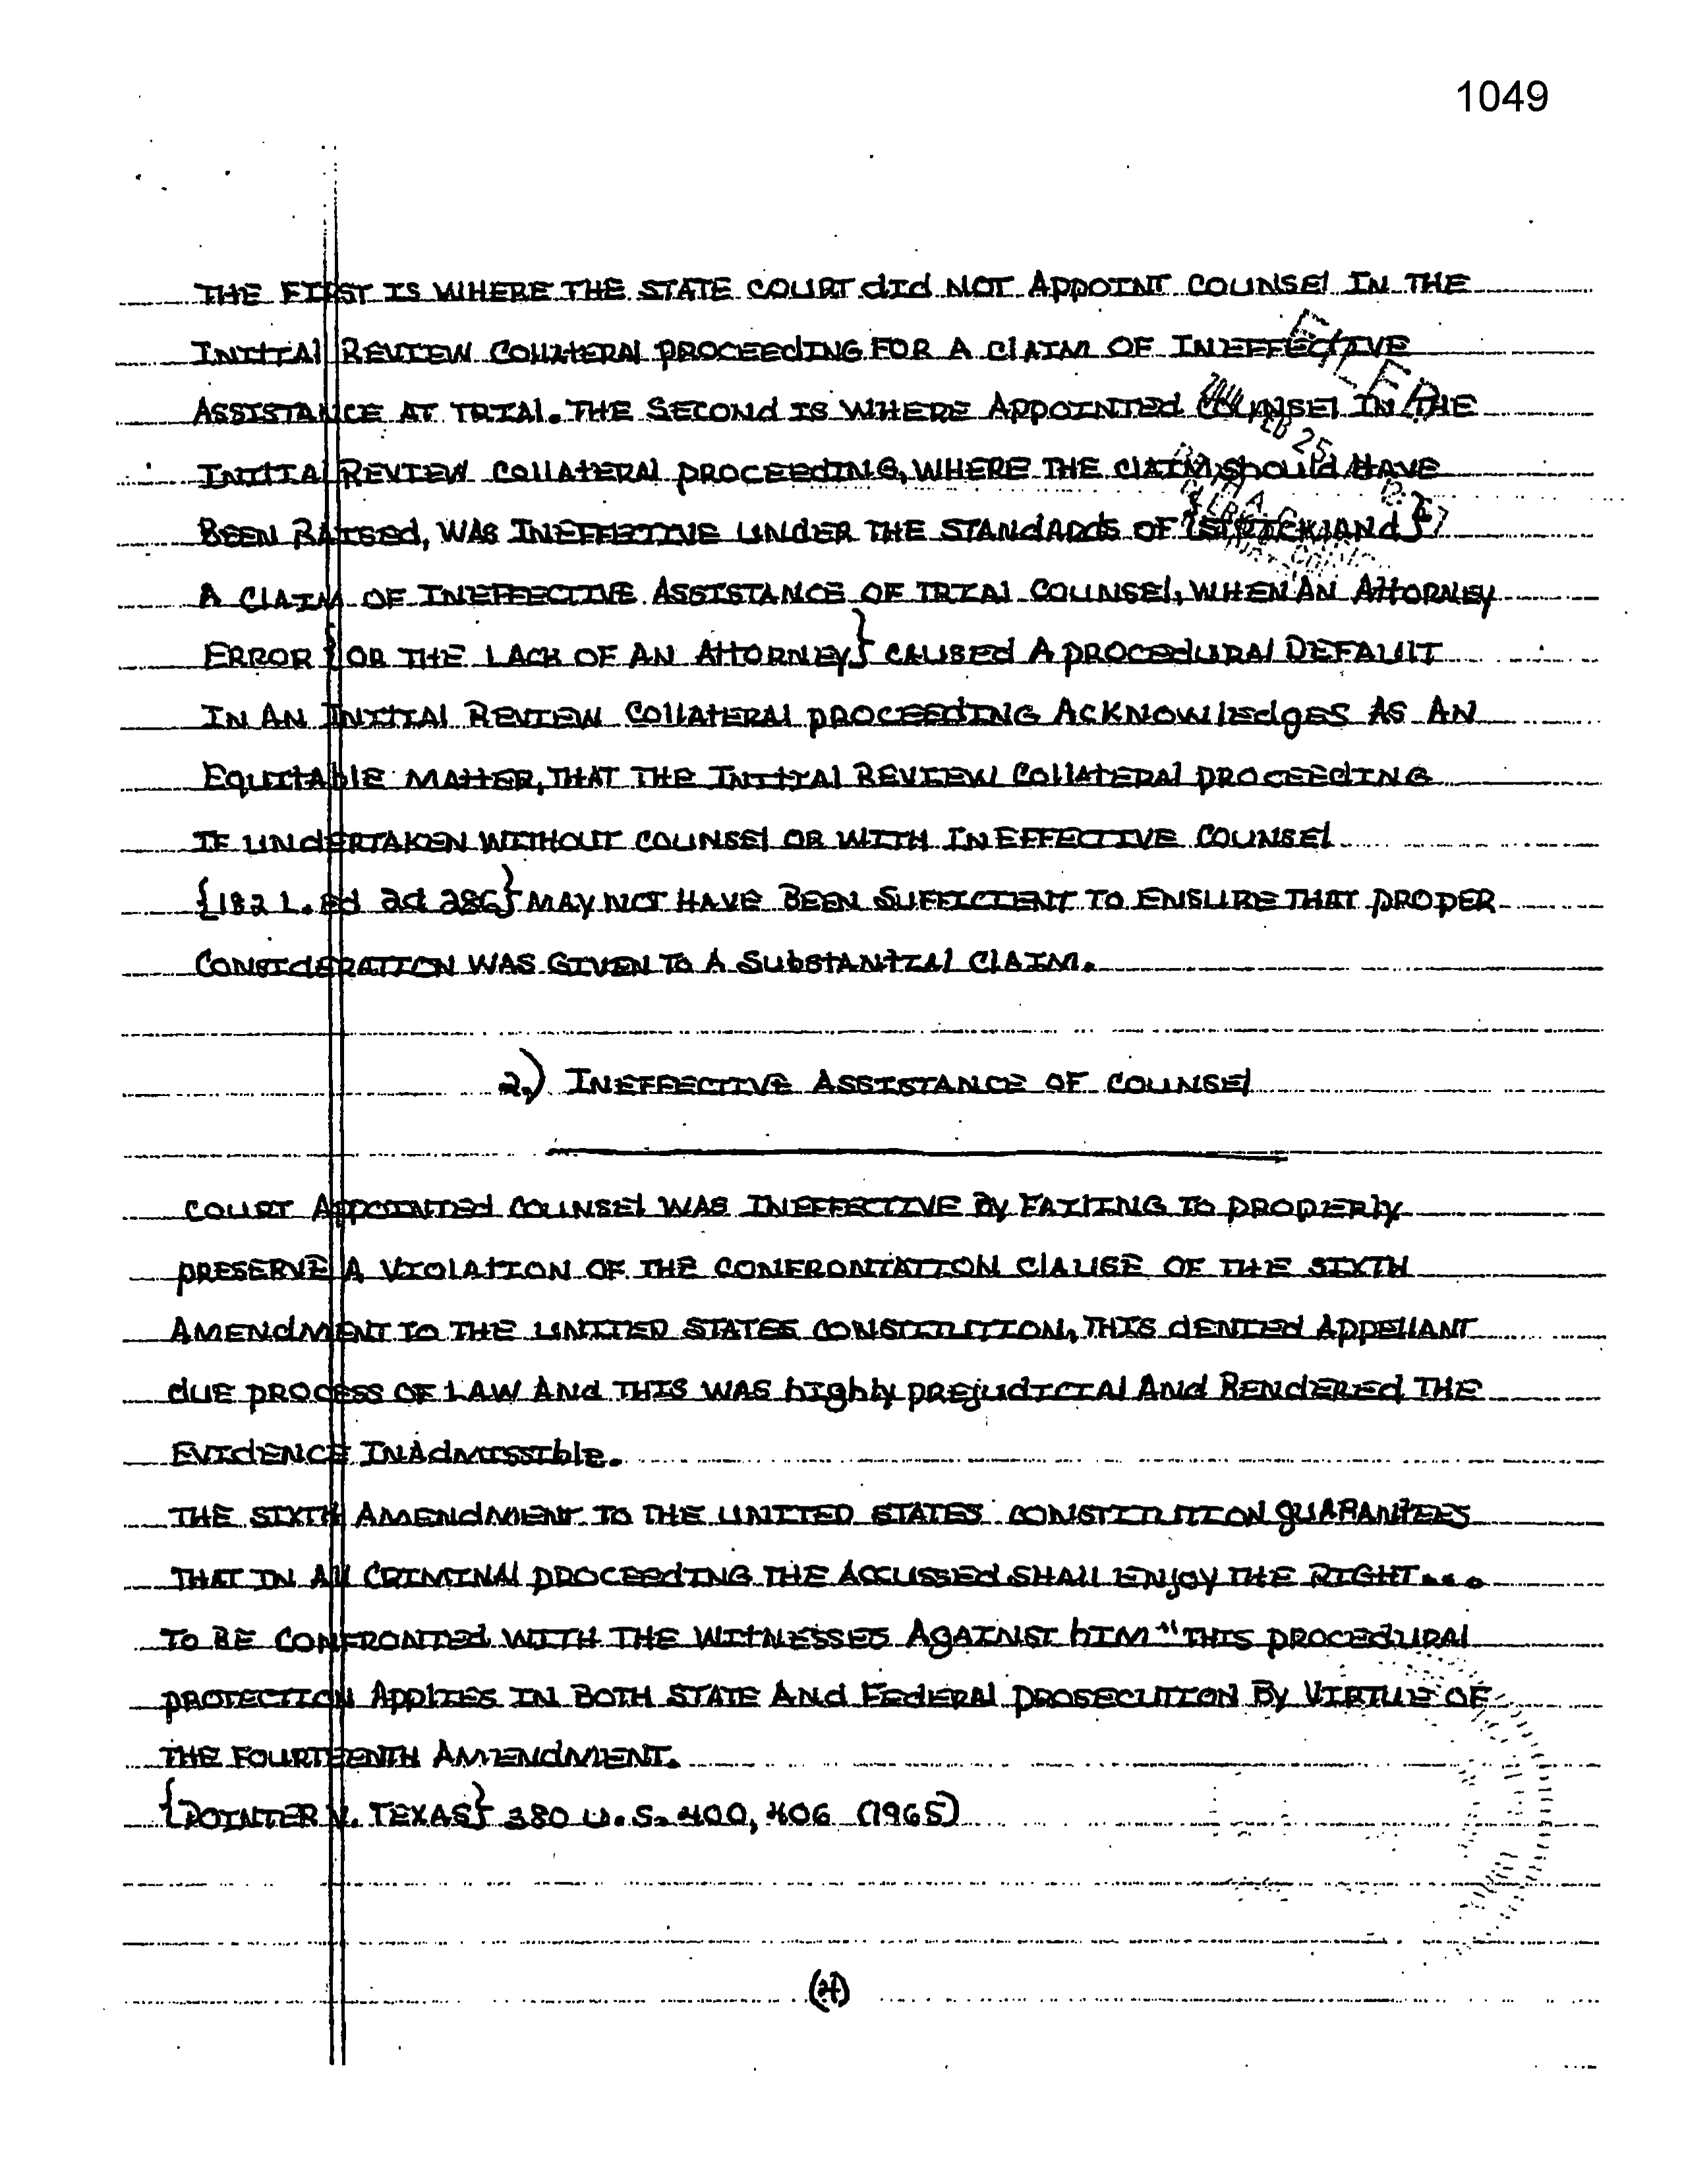 1049
THE FIRST IS WHERE THE STATE COURT did NOT APPOINT COUNSEl IN THE
INITIAl REVIEW COllATERAl PROCEEdING FOR A ClAIM OF INEFFECTIVE
FILED
ASSISTANCE AT TRIAl. THE SECONd IS WHERE APPOINTEd COUNSEl IN THE
FEB 25
INITIAl REVIEW COllATERAl PROCEEdING, WHERE THE ClAIM should HAVE
BEEN RAISEd, WAS INEFFECTIVE UNDER THE STANdARds OF {STRICKlANd}
A ClAIM OF INEFFECTIVE ASSISTANCE OF TRIAl COUNSEl, WHEN AN ATTORNEy
ERROR {OR THE LACK OF AN ATTORNEy} CAUSEd A PROCEdURAl DEFAULT
IN AN INITIAl REVIEW COllATERAl PROCEEdING ACKNOWlEdgES AS AN
EQUITAblE MATTER, THAT THE INITIAl REVIEW COllATERAl PROCEEdING
IF UNdERTAKEN WITHOUT COUNSEl OR WITH INEFFECTIVE COUNSEl
{182 L. Ed 2d 286} MAY NOT HAVE BEEN SUFFICIENT TO ENSURE THAT PROPER
CONSIdERATION WAS GIVEN TO A SUbSTANTIAl ClAIM.
2.) INEFFECTIVE ASSISTANCE OF COUNSEl
COURT APPOINTEd COUNSEl WAS INEFFECTIVE By FAIlING TO PROPERly
PRESERVE A VIOlATION OF THE CONFRONTATION ClAUSE OF THE SIXTH
AMENdMENT TO THE UNITED STATES CONSTITUTION, THIS dENIEd APPEllANT
dUE PROCESS OF LAW ANd THIS WAS hIghly PREjudICIAl ANd RENdEREd THE
EVIdENCE INAdMISSIblE.
THE SIXTH AMENdMENT TO THE UNITED STATES CONSTITUTION gUARANTEES
THAT IN All CRIMINAl PROCEEdING THE ACCUSSEd SHAll ENjoy THE RIGHT...
TO BE CONFRONTEd WITH THE WITNESSES AgAINST hIM" THIS PROCEdURAl
PROTECTION APPlIES IN BOTH STATE ANd FEdERAl PROSECUTION By VIRTUE OF
THE FOURTEENTH AMENdMENT.
{POINTER V. TEXAS} 380 U.S. 400, 406 (1965)